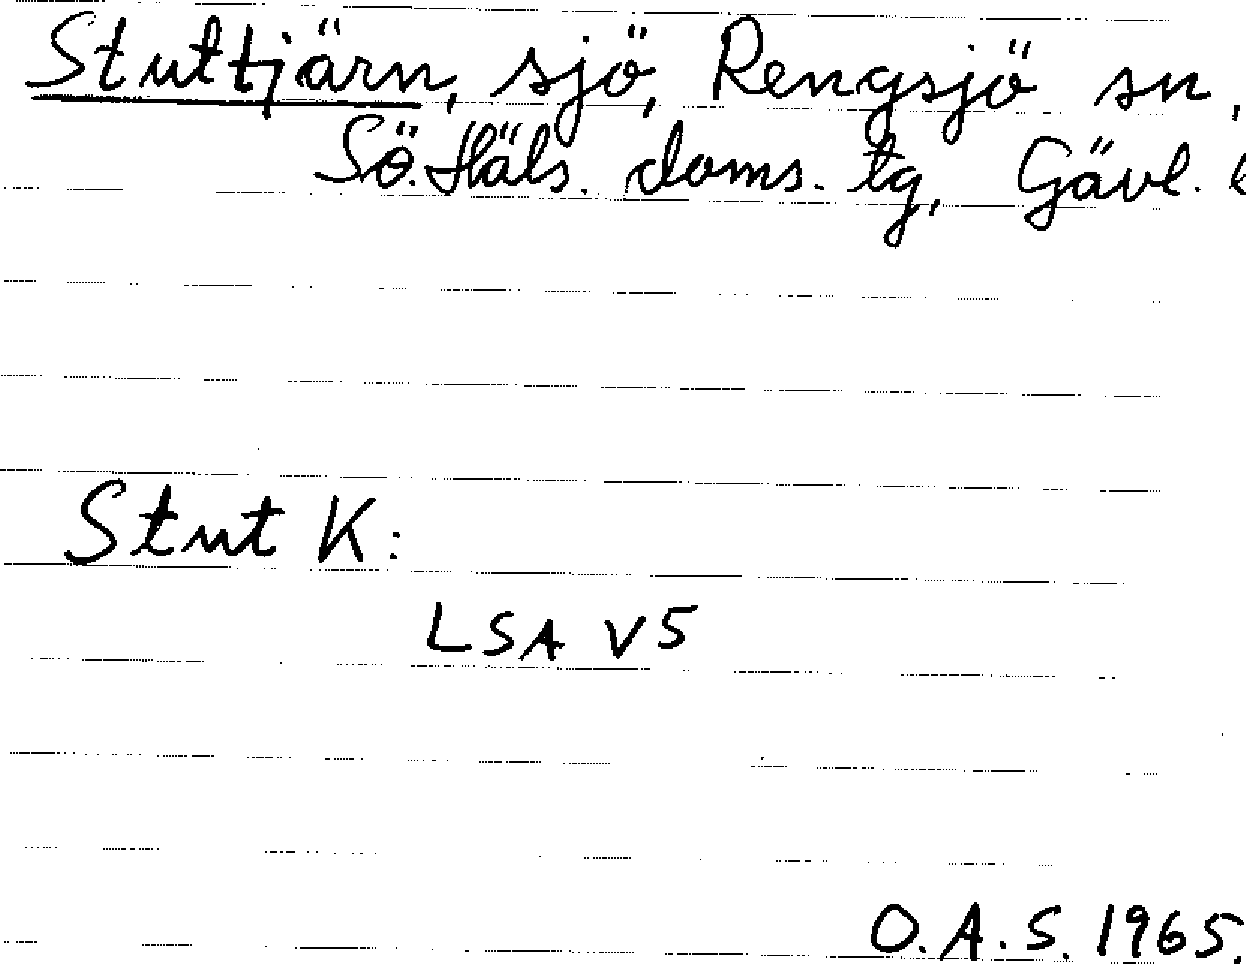 Stuttjärn, sjö, Rengsjö sn,
Sö. Häls. doms. tg, Gävl. l
Stut K:
LSA V5
O.A.S. 1965.